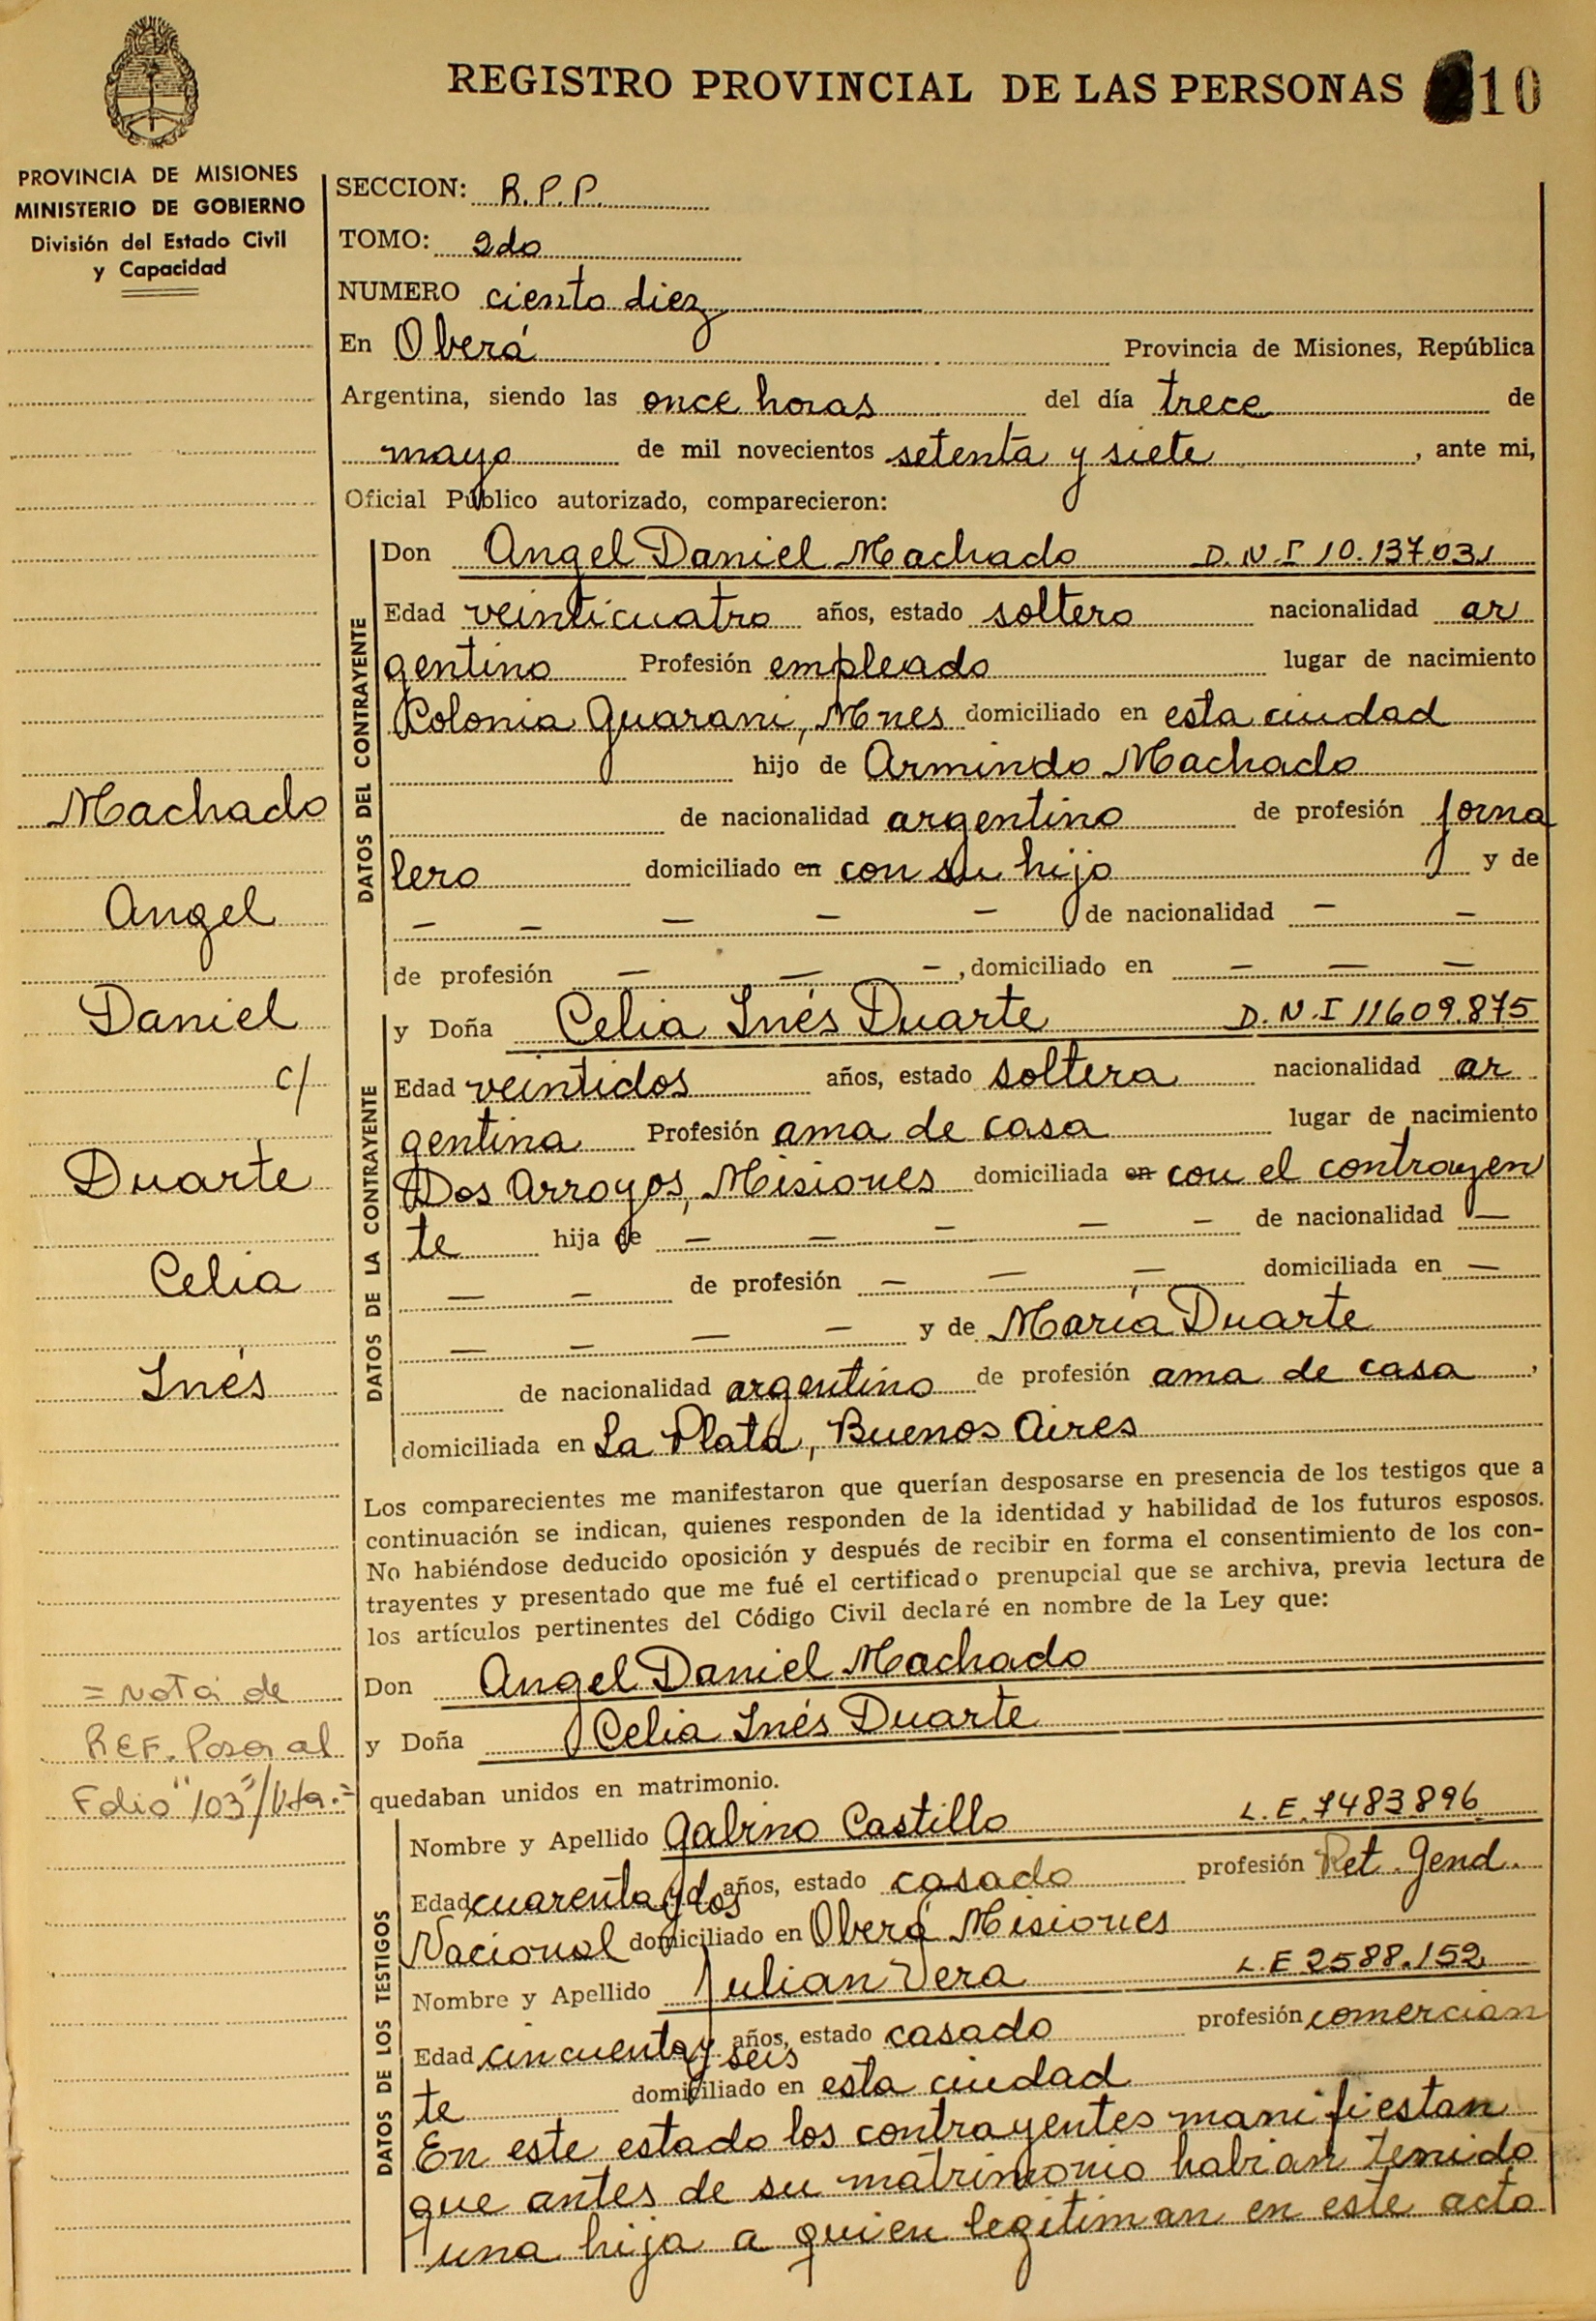 REGISTRO PROVINCIAL DE LAS PERSONAS 10
PROVINCIA DE MISIONES
MINISTERIO DE GOBIERNO
División del Estado Civil
y Capacidad
SECCION: R.P.P.
TOMO: 2do
NUMERO ciento diez
En Oberá Provincia de Misiones, República
Argentina, siendo las once horas del día trece de
mayo de mil novecientos setenta y siete, ante mi,
Oficial Público autorizado, comparecieron:
DATOS DEL CONTRAYENTE
Don Angel Daniel Machado D.N.I 10.137.031
Edad veinticuatro años, estado soltero nacionalidad ar
gentino Profesión empleado lugar de nacimiento
Colonia Guarani, Mnes domiciliado en esta ciudad
hijo de Armindo Machado
de nacionalidad argentino de profesión jorna
lero domiciliado en con su hijo y de
— — — — de nacionalidad — —
de profesión — — —, domiciliado en — — —
DATOS DE LA CONTRAYENTE
y Doña Celia Inés Duarte D.N.I 11609.875
Edad veintidos años, estado soltera nacionalidad ar
gentina Profesión ama de casa lugar de nacimiento
Dos Arroyos, Misiones domiciliada en con el contrayen
te hija de — — — — — de nacionalidad —
— — de profesión — — — domiciliada en —
— — — — y de María Duarte
de nacionalidad argentino de profesión ama de casa,
domiciliada en La Plata, Buenos Aires
Los comparecientes me manifestaron que querían desposarse en presencia de los testigos que a
continuación se indican, quienes responden de la identidad y habilidad de los futuros esposos.
No habiéndose deducido oposición y después de recibir en forma el consentimiento de los con-
trayentes y presentado que me fué el certificado prenupcial que se archiva, previa lectura de
los artículos pertinentes del Código Civil declaré en nombre de la Ley que:
Don Angel Daniel Machado
y Doña Celia Inés Duarte
quedaban unidos en matrimonio.
DATOS DE LOS TESTIGOS
Nombre y Apellido Galrno Castillo L.E. 7483896
Edad cuarenta y dos años, estado casado profesión Ret. Gend.
Nacional domiciliado en Oberá Misiones
Nombre y Apellido Julian Vera L.E 2588.152
Edad cincuenta y seis años, estado casado profesión comercian
te domiciliado en esta ciudad
En este estado los contrayentes manifiestan
que antes de su matrimonio habian tenido
una hija a quien legitiman en este acto
Machado
Angel
Daniel
c/
Duarte
Celia
Inés
= Nota de
REF. Pasa al
Folio "103"/Vta.=